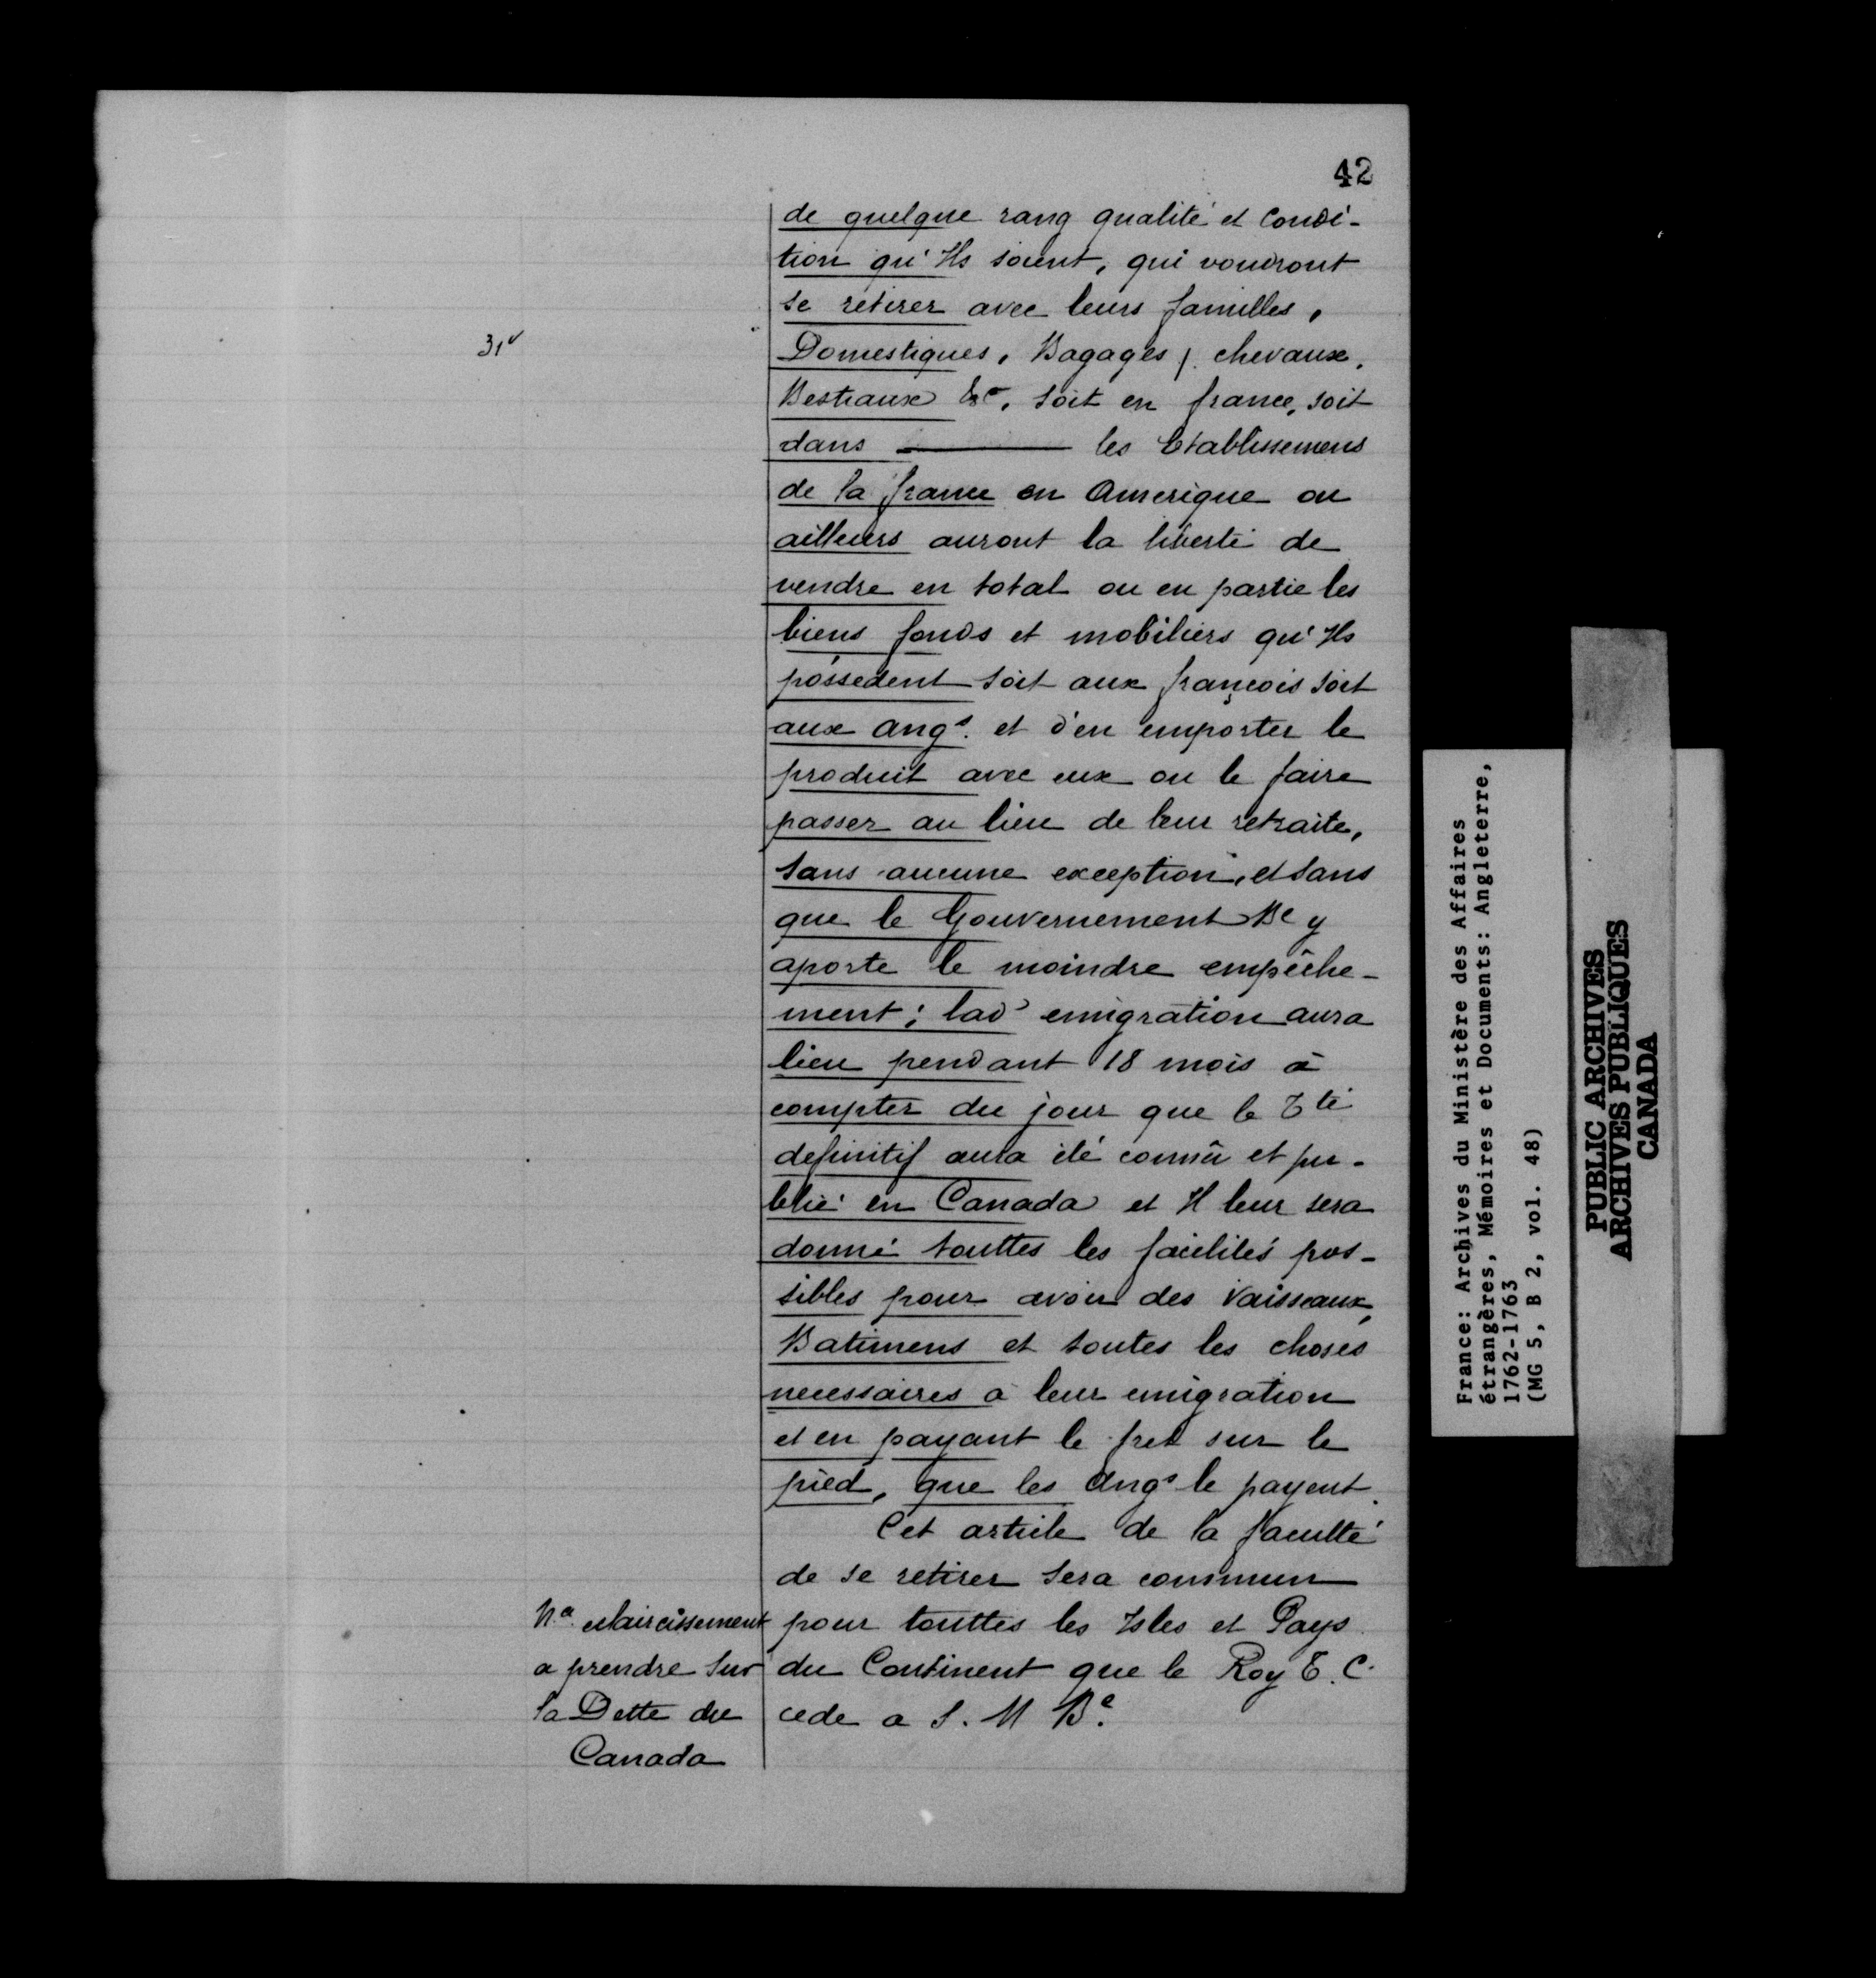 42
de quelque rang qualité et Condi-
tion qu'Ils soient, qui voudront
se retirer avec leurs familles,
31v
Domestiques, Bagages, chevaux,
Bestiaux &c, soit en france, soit
dans ——— les Etablissemens
de la france en Amerique ou
ailleurs auront la liberté de
vendre en total ou en partie les
biens fonds et mobiliers qu'Ils
possedent soit aux françois soit
aux angs. et d'en emporter le
produit avec eux ou le faire
passer au lieu de leur retraite,
sans aucune exception, et sans
que le Gouvernement Be y
aporte le moindre empêche-
ment; lad emigration aura
lieu pendant 18 mois à
compter du jour que le Tté
definitif aura été connû et pu-
blié en Canada et Il leur sera
donné touttes les facilités pos-
sibles pour avoir des Vaisseaux,
Batimens et toutes les choses
necessaires a leur emigration
et en payant le fret sur le
pied, que les Angs le payent.
Cet article de la faculté
de se retirer sera commun
Na eclaircissement
a prendre sur
la Dette du
Canada
pour touttes les Isles et Pays
du Continent que le Roy T. C.
cede a S. M Be.
France: Archives du Ministère des Affaires
étrangères, Mémoires et Documents: Angleterre,
1762-1763
(MG 5, B 2, vol. 48)
PUBLIC ARCHIVES
ARCHIVES PUBLIQUES
CANADA